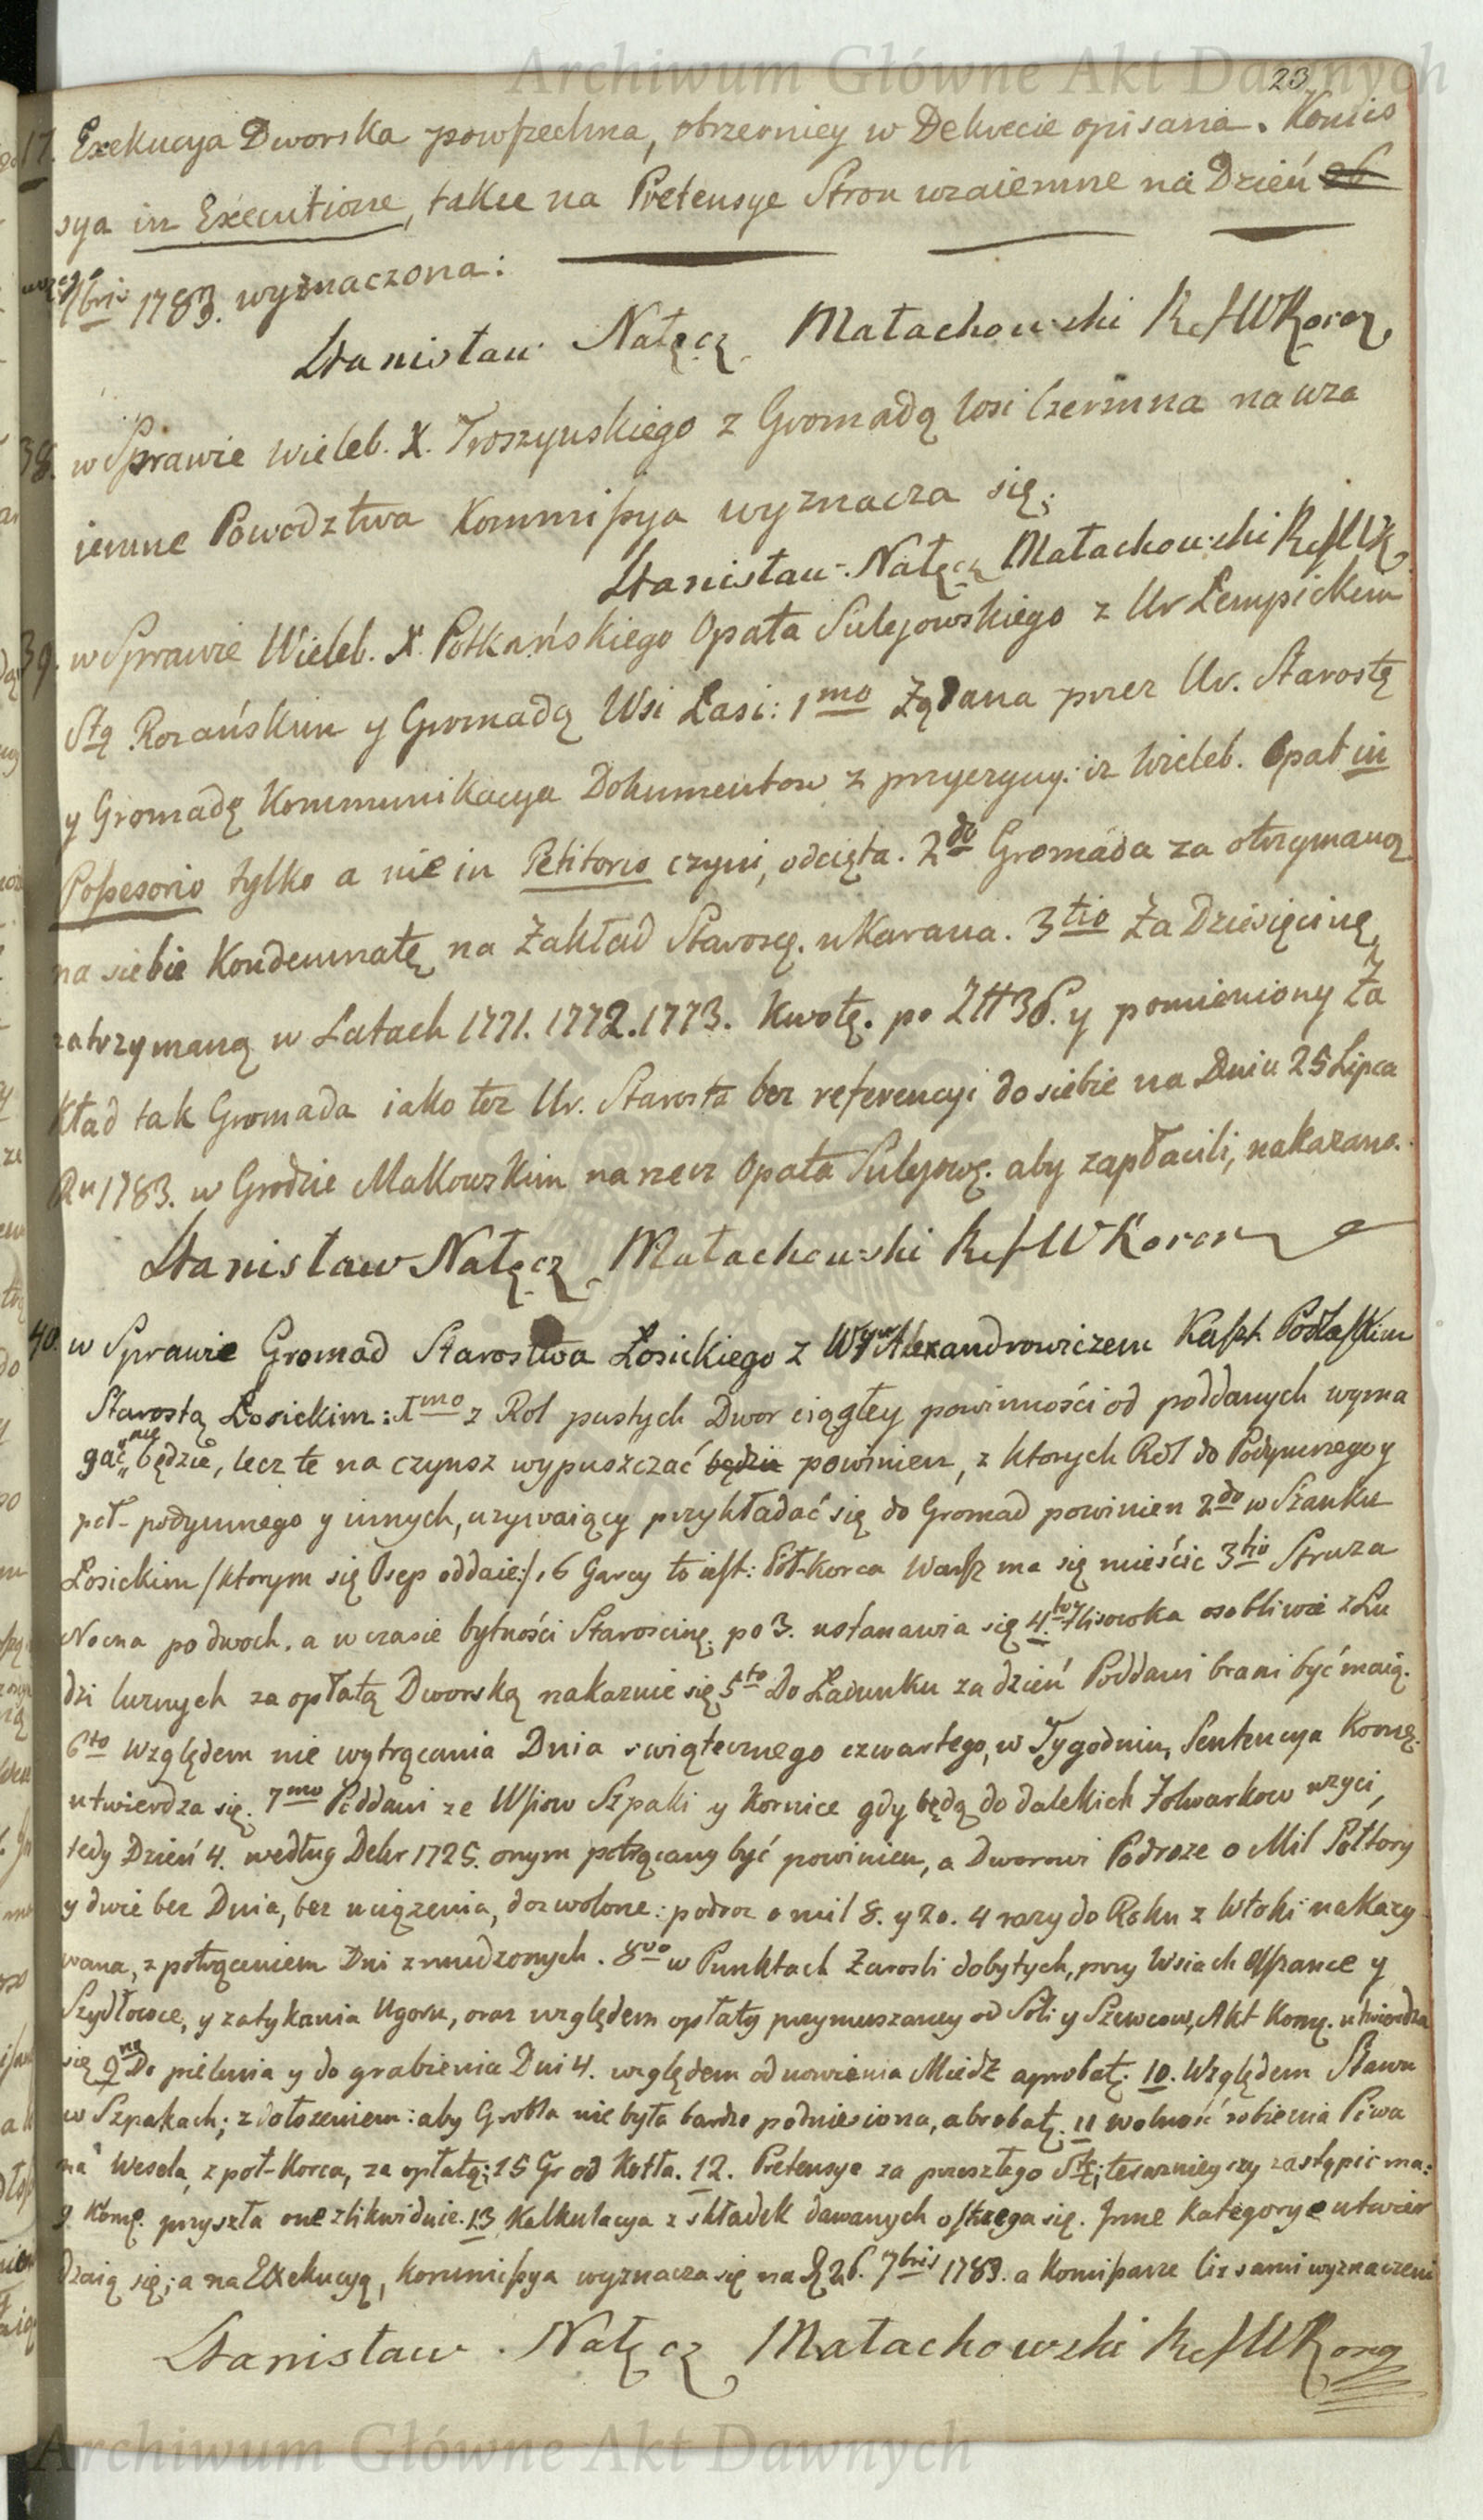 Archiwum Główne Akt Dawnych
23
17. Exekucya Dworska powszechna, obszerniey w Dekrecie opisana. Komis
sya in Executione, także na Pretensye Stron wzaiemne na Dzień 26
7bris 1783. wyznaczona:
Stanisław Nałęcz Małachowski RefWKoron
38. w Sprawie Wieleb. X. Troszynskiego z Gromadą wsi Czermna na wza
iemne Powodztwa Kommissya wyznacza się;
Stanisław Nałęcz Małachowski RefWK
39. w Sprawie Wieleb. X. Potkańskiego Opata Sulejowskiego z Ur Łempickim
Stą Rozańskim y Gromadą Wsi Łasi: 1mo Żądana przez Ur. Starostę
y Gromadę Kommunikacya Dokumentow z przyczyny: iz Wieleb. Opat in
Possesorio tylko a nie in Petitorio czyni, odcięta. 2do Gromada za otrzymaną
na siebie Kondemnatę na Zakład Starosę. ukarana. 3tio Za Dziesięcinę
zatrzymaną w Latach 1771. 1772. 1773. Kwotę. po Złł 36. y pomieniony Za
kład tak Gromada iako tez Ur. Starosta bez referencyi do siebie na Dniu 25 Lipca
Ru 1783. w Grodzie Makowskim na rzecz Opata Sulejowę. aby zapłacili, nakazano.
Stanisław Nałęcz Małachowski RefWKoron
40. w Sprawie Gromad Starostwa Łosickiego z Wym Alexandrowiczem Kaszt. Podlaskim
Starostą Łosickim: 1mo z Rol pustych Dwor ciągłey powinności od poddanych wyma
gać nie będzie, lecz te na czynsz wypuszczać będzie powinien, z ktorych Rol do Podymnego y
poł-podymnego y innych, uzywaiący przykładać się do Gromad powinien 2do w Szanku
Łosickim /ktorym się Osep oddaie:/ 16 Garcy to iest: Poł-Korca Warsz ma się mieścic 3tio Struza
Nocna po dwoch. a w czasie bytności Starościnę. po 3. ustanawia się 4to Hlisowka osobliwie z Lu
dzi luznych za opłatą Dworską nakazuie się 5to Do Ładunku za dzień Poddani brani być maią.
6to Względem nie wytrącania Dnia swiątecznego czwartego, w Tygodniu, Sentencya Komę.
utwierdza się. 7mo Poddani ze Wsiow Szpaki y Kornice gdy będą do dalekich Folwarkow uzyci,
tedy Dzień 4. według Dekr 1725. onym potrącany być powinien, a Dworowi Podroze o Mil Połtory
y dwie bez Dnia, bez uciązenia, dozwolone: podroz o mil 8. y 20. 4 razy do Roku z Włoki nakazy
wana, z potrąceniem Dni zmudzonych. 8vo w Punktach Zarosli dobytych, przy Wsiach y
Szydłowce, y zatykania Ugoru, oraz względem opłaty przymuszaney od Soli y Szewcow, Akt Komę. utwierdza
się 9no Do pielenia y do grabienia Dni 4. względem odnowienia Miedz aprobatę. 10. Względem Stawu
w Szpakach; z dołozeniem: aby Grobla nie była bardzo podniesiona, abrobatę. 11 wolność robienia Piwa
na Wesela, z poł-Korca, za opłatę: 15 Gr od Kotła. 12. Pretensye za przeszłego Stę; teraznieyszy zastąpic ma:
9. Komę. przyszła one zlikwiduie. 13 Kalkulacya z składek dawanych ostrzega się. Inne Kategorye utwier
dzaią się; a na Exekucyą, kommissya wyznacza się na D. 26. 7bris 1783. a Komissarze ciz sami wyznaczeni
Stanisław Nałęcz Małachowski RefWKoron
Archiwum Główne Akt Dawnych